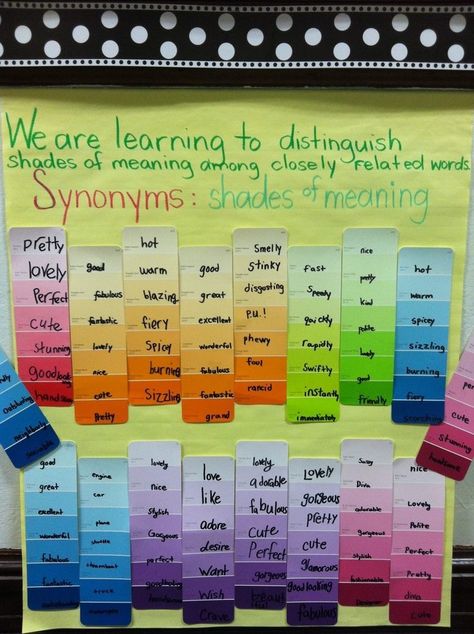 We are learning to distinguish
shades of meaning among closely related words.
Synonyms: shades of meaning
Pretty
lovely
Perfect
cute
stunning
good looking
handsome
good
fabulous
fantastic
lovely
nice
cute
Pretty
hot
warm
blazing
fiery
spicy
burning
Sizzling
good
great
excellent
wonderful
fabulous
fantastic
grand
Smelly
stinky
disgusting
P.U.!
phewy
foul
rancid
fast
speedy
quickly
rapidly
Swiftly
instantly
immediately
nice
pretty
kind
polite
lovely
good
Friendly
hot
warm
spicy
sizzling
burning
fiery
scorching
outstanding
neighborly
sociable
pretty
cute
stunning
handsome
good
great
excellent
wonderful
fabulous
fantastic
engine
car
plane
shuttle
steamboat
truck
lovely
nice
stylish
Gorgeous
perfect
goodlooking
love
like
adore
desire
Want
Wish
Crave
lovely
adorable
fabulous
Cute
Perfect
gorgeous
Lovely
gorgeous
Pretty
cute
glamorous
good looking
fabulous
Sassy
Diva
adorable
gorgeous
Stylish
fashionable
nice
Lovely
Polite
Perfect
Pretty
diva
cute